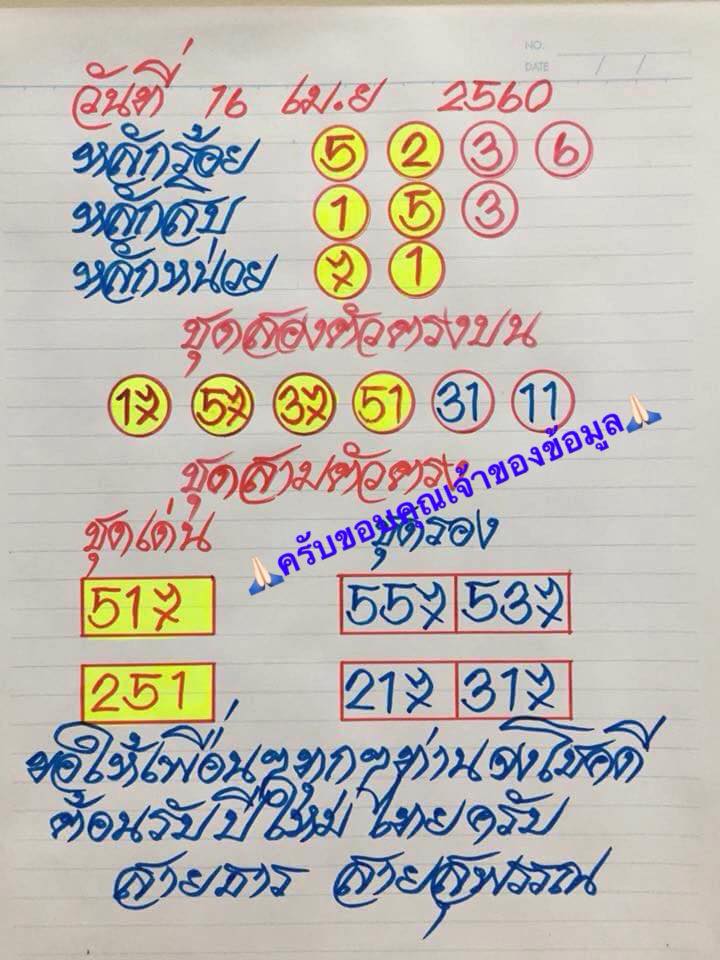 NO.
DATE / /
วันที่ 16 เม.ย 2560
หลักร้อย 5 2 3 6
หลักสิบ 1 5 3
หลักหน่วย 7 1
ชุดสองตัวตรงบน
17 57 37 51 31 11
ชุดสามตัวตรง
🙏🏻ครับขอบคุณเจ้าของข้อมูล🙏🏻
ชุดเด่น ชุดรอง
517 557 537
251 217 317
ขอให้เพื่อนๆทุกๆท่านจงโชคดี
ต้อนรับปีใหม่ไทยครับ
สายธาร สายสุพรรณ